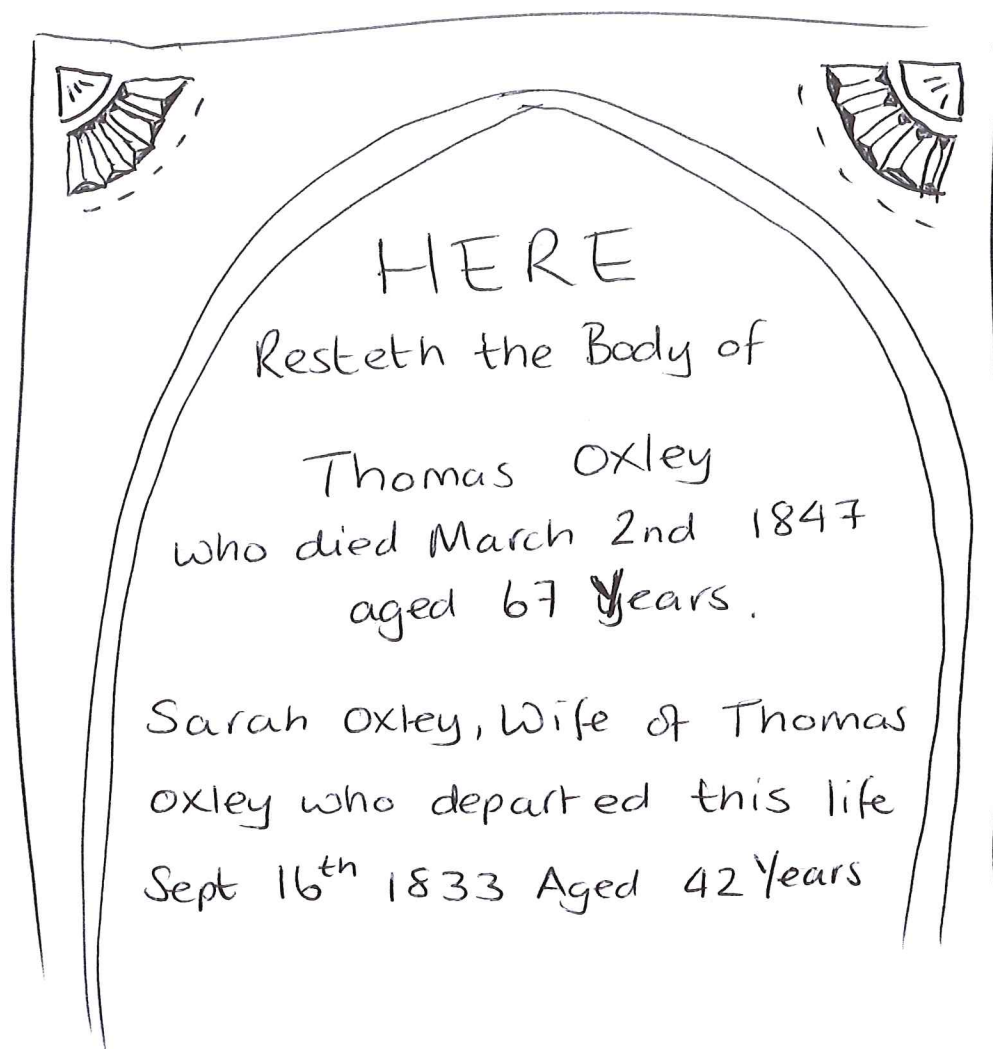 HERE
Resteth the Body of
Thomas Oxley
who died March 2nd 1847
aged 67 Years.
Sarah Oxley, Wife of Thomas
Oxley who departed this life
Sept 16th 1833 Aged 42 Years